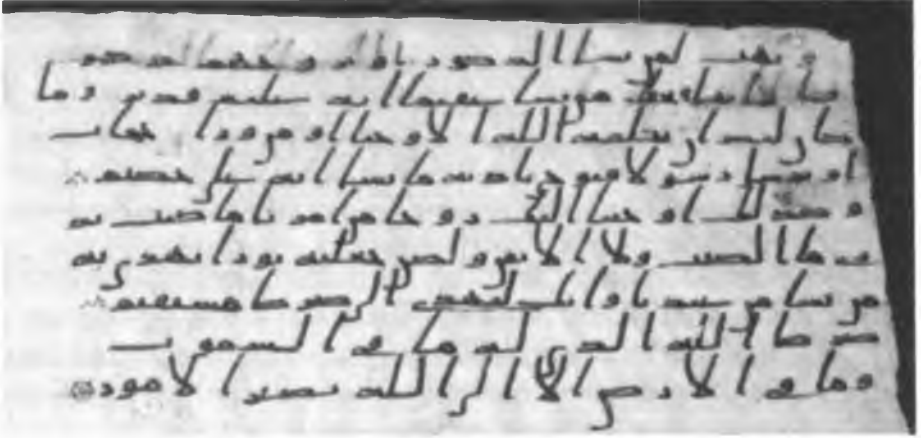 و يهب لمن يشا الذكور او يزوجهم
من يشا عقيما انه عليم قدير و ما
كان لبشر ان يكلمه الله الا وحيا او من ورا حجاب
او يرسل رسولا فيوحي باذنه ما يشا انه علي حكيم
و كذلك اوحينا اليك روحا من امرنا ما كنت تد
ري ما الكتب ولا الايمن ولكن جعلنه نورا نهدي به
من نشا من عبدنا وانك لتهدي الى صرط مستقيم
صرط الله الذي له ما في السموت
وما في الارض الا الى الله تصير الامور